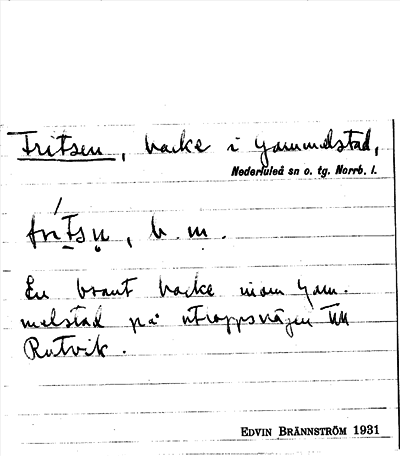 Fritsen, backe i Gammelstad,
Nederluleå sn o. tg. Norrb. l.
b. m.
En brant backe inom Gam-
melstad på utroppsvägen till
Rutvik.
EDVIN BRÄNNSTRÖM 1931